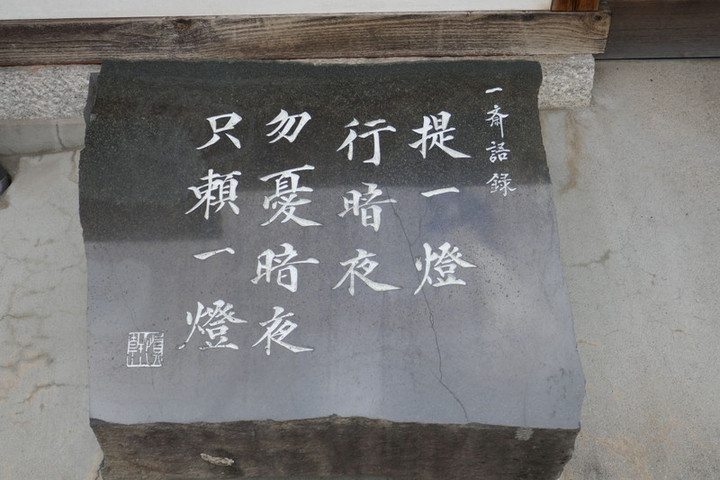 一斎語録
提一燈
行暗夜
勿憂暗夜
只頼一燈